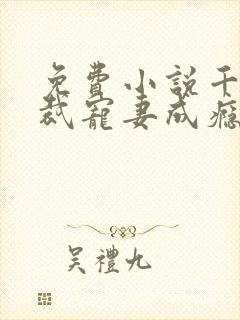 免費小說千
裁寵妻成癮
吳禮九